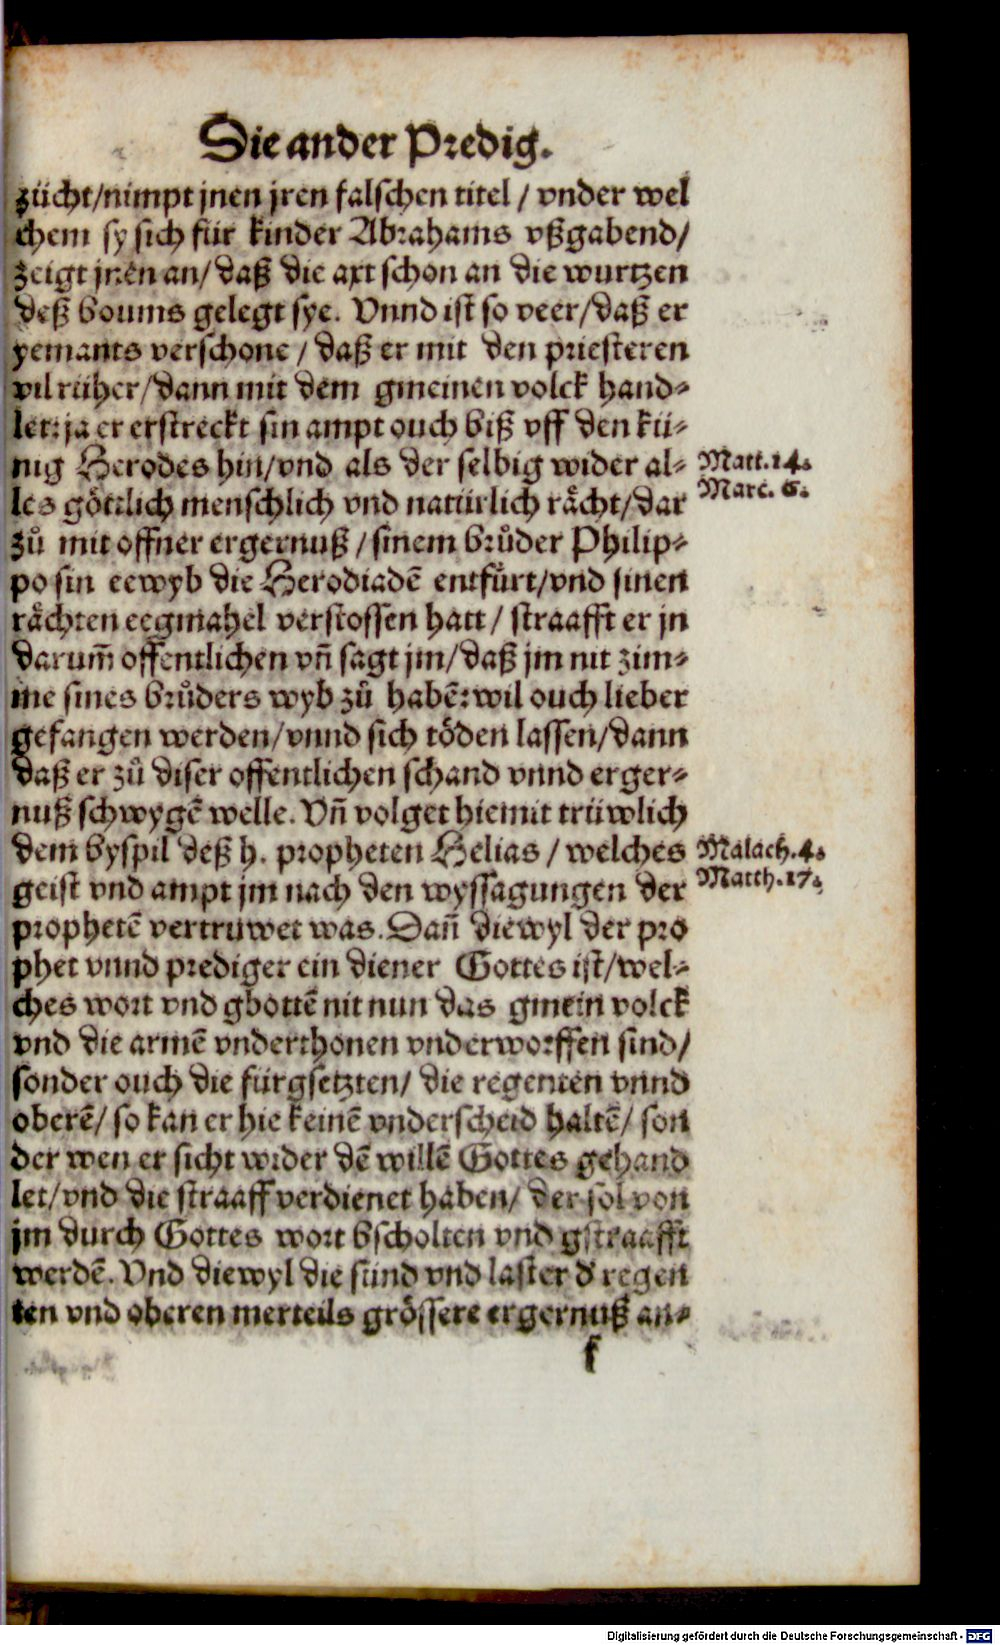 Die ander Predig.
zücht/nimpt jnen jren falschen titel / vnder wel
chem sy sich für kinder Abrahams vßgabend/
zeigt jnen an/ daß die axt schon an die wurtzen
deß boums gelegt sye. Vnnd ist so veer/daß er
yemants verschone / daß er mit den priesteren
vil rüher/dann mit dem gmeinen volck hand⸗
let: ja er erstreckt sin ampt ouch biß vff den kü⸗
nig Herodes hin/vnd als der selbig wider al⸗
les göttlich menschlich vnd natürlich rächt/dar
zů mit offner ergernuß / sinem brůder Philip⸗
po sin eewyb die Herodiadē entfürt/vnd sinen
rächten eegmahel verstossen hatt / straafft er jn
darum̃ offentlichen vñ sagt jm/ daß jm nit zim⸗
me sines brůders wyb zů habē: wil ouch lieber
gefangen werden/vnnd sich töden lassen/dann
daß er zů diser offentlichen schand vnnd erger⸗
nuß schwygē welle. Vñ volget hiemit trüwlich
dem byspil deß h. propheten Helias / welches
geist vnd ampt jm nach den wyssagungen der
prophetē vertruwet was. Dañ diewyl der pro
phet vnnd prediger ein diener Gottes ist/wel⸗
ches wort vnd gbottē nit nun das gmein volck
vnd die armē vnderthonen vnderworffen sind/
sonder ouch die fürgsetzten/ die regenten vnnd
oberē/ so kan er hie keinē vnderscheid haltē/ son
der wen er sicht wider dē willē Gottes gehand
let/vnd die straaff verdienet haben/ der sol von
jm durch Gottes wort bscholten vnd gstraafft
werdē. Vnd diewyl die sünd vnd laster d' regen
ten vnd oberen merteils grössere ergernuß an⸗
f
Matt. 14.
Marc. 6.
Malach. 4.
Matth. 17.
Digitalisierung gefördert durch die Deutsche Forschungsgemeinschaft - DFG